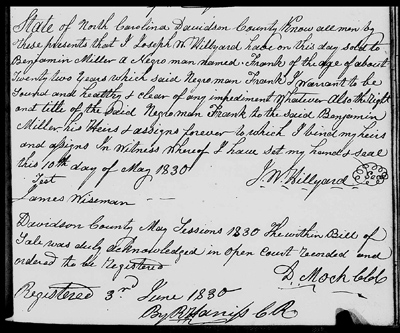 State of North Carolina Davidson County Know all men by
these presents that I Joseph W Hillyard have on this day sold to
Benjamin Miller a Negro man named Frank of the age of about
Twenty two Years which said Negro man Frank I warrant to be
Sound and healthy & clear of any impediment Whatever Also the right
and title of the said Negro man Frank to the said Benjamin
Miller his Heirs & assigns forever to which I bind my heirs
and assigns In Witness Whereof I have set my hand & seal
this 10th day of May 1830
J. W. Hillyard Seal
Test
James Wiseman
Davidson County May Sessions 1830 The within Bill of
Sale was duly acknowledged in Open Court recorded and
ordered to be Registered
D. Mock CCC
Registered 3rd June 1830
By R Harriss C R